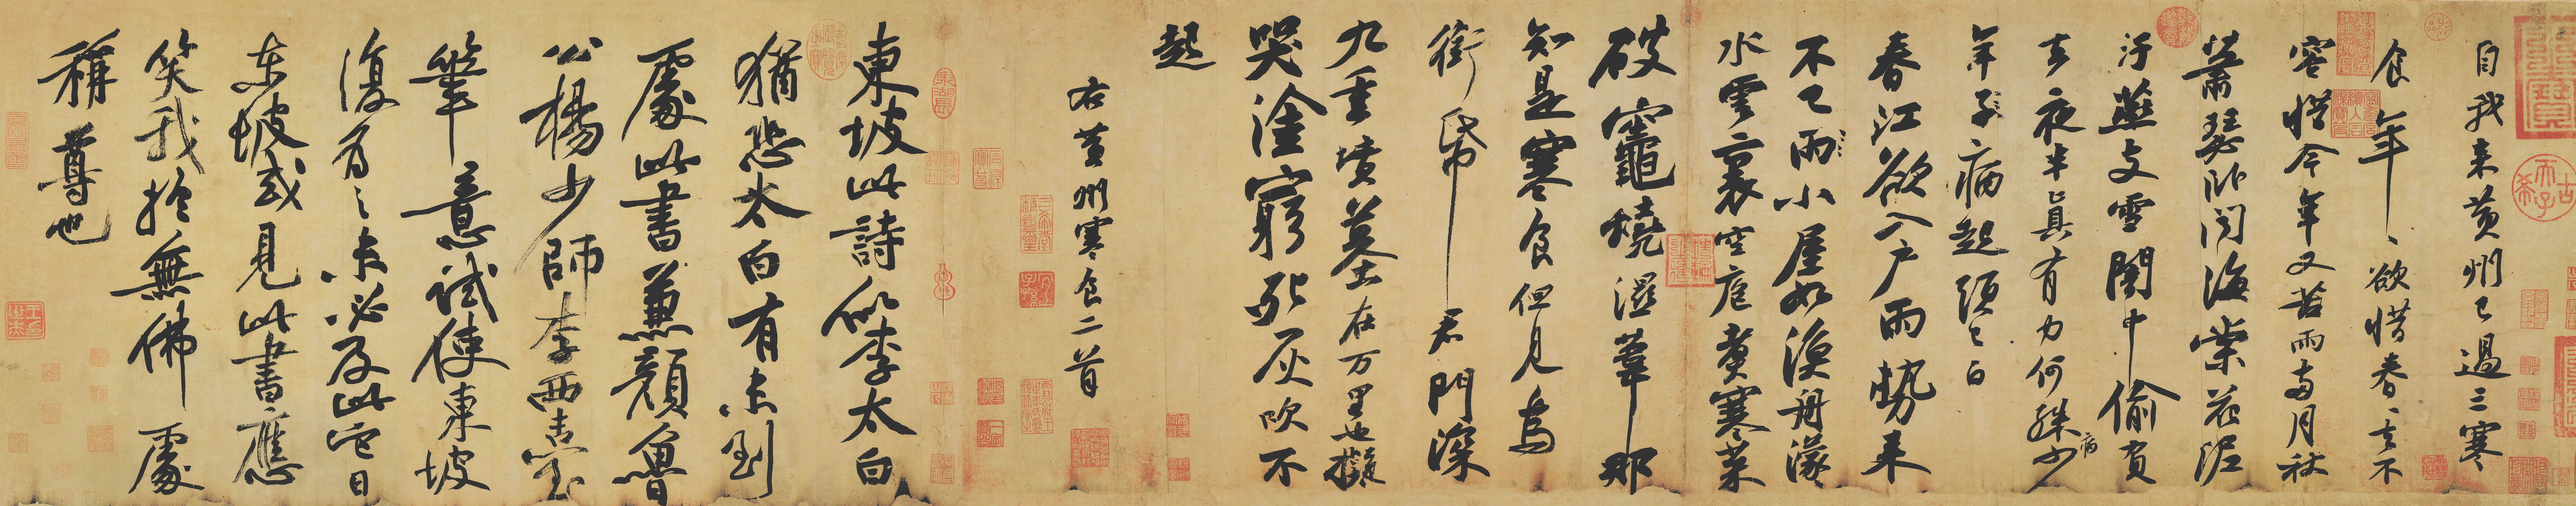 自我来黄州已過三寒
食年〻欲惜春〻去不
容惜今年又苦雨兩月秋
蕭瑟卧聞海棠花泥
汙燕支雪闇中偷負
去夜半真有力何殊少
年子病起頭已白
春江欲入戶雨勢来
不已雨小屋如漁舟濛〻
水雲裏空庖煑寒菜
破竈燒濕葦那
知是寒食但見烏
銜帋君門深
九重墳墓在万里也擬
哭塗窮死灰吹不
起
右黄州寒食二首
東坡此詩似李太白
猶恐太白有未到
處此書兼顏魯
公楊少師李西臺
筆意試使東坡
復為之未必及此它日
东坡或見此書應
笑我於無佛處
稱尊也